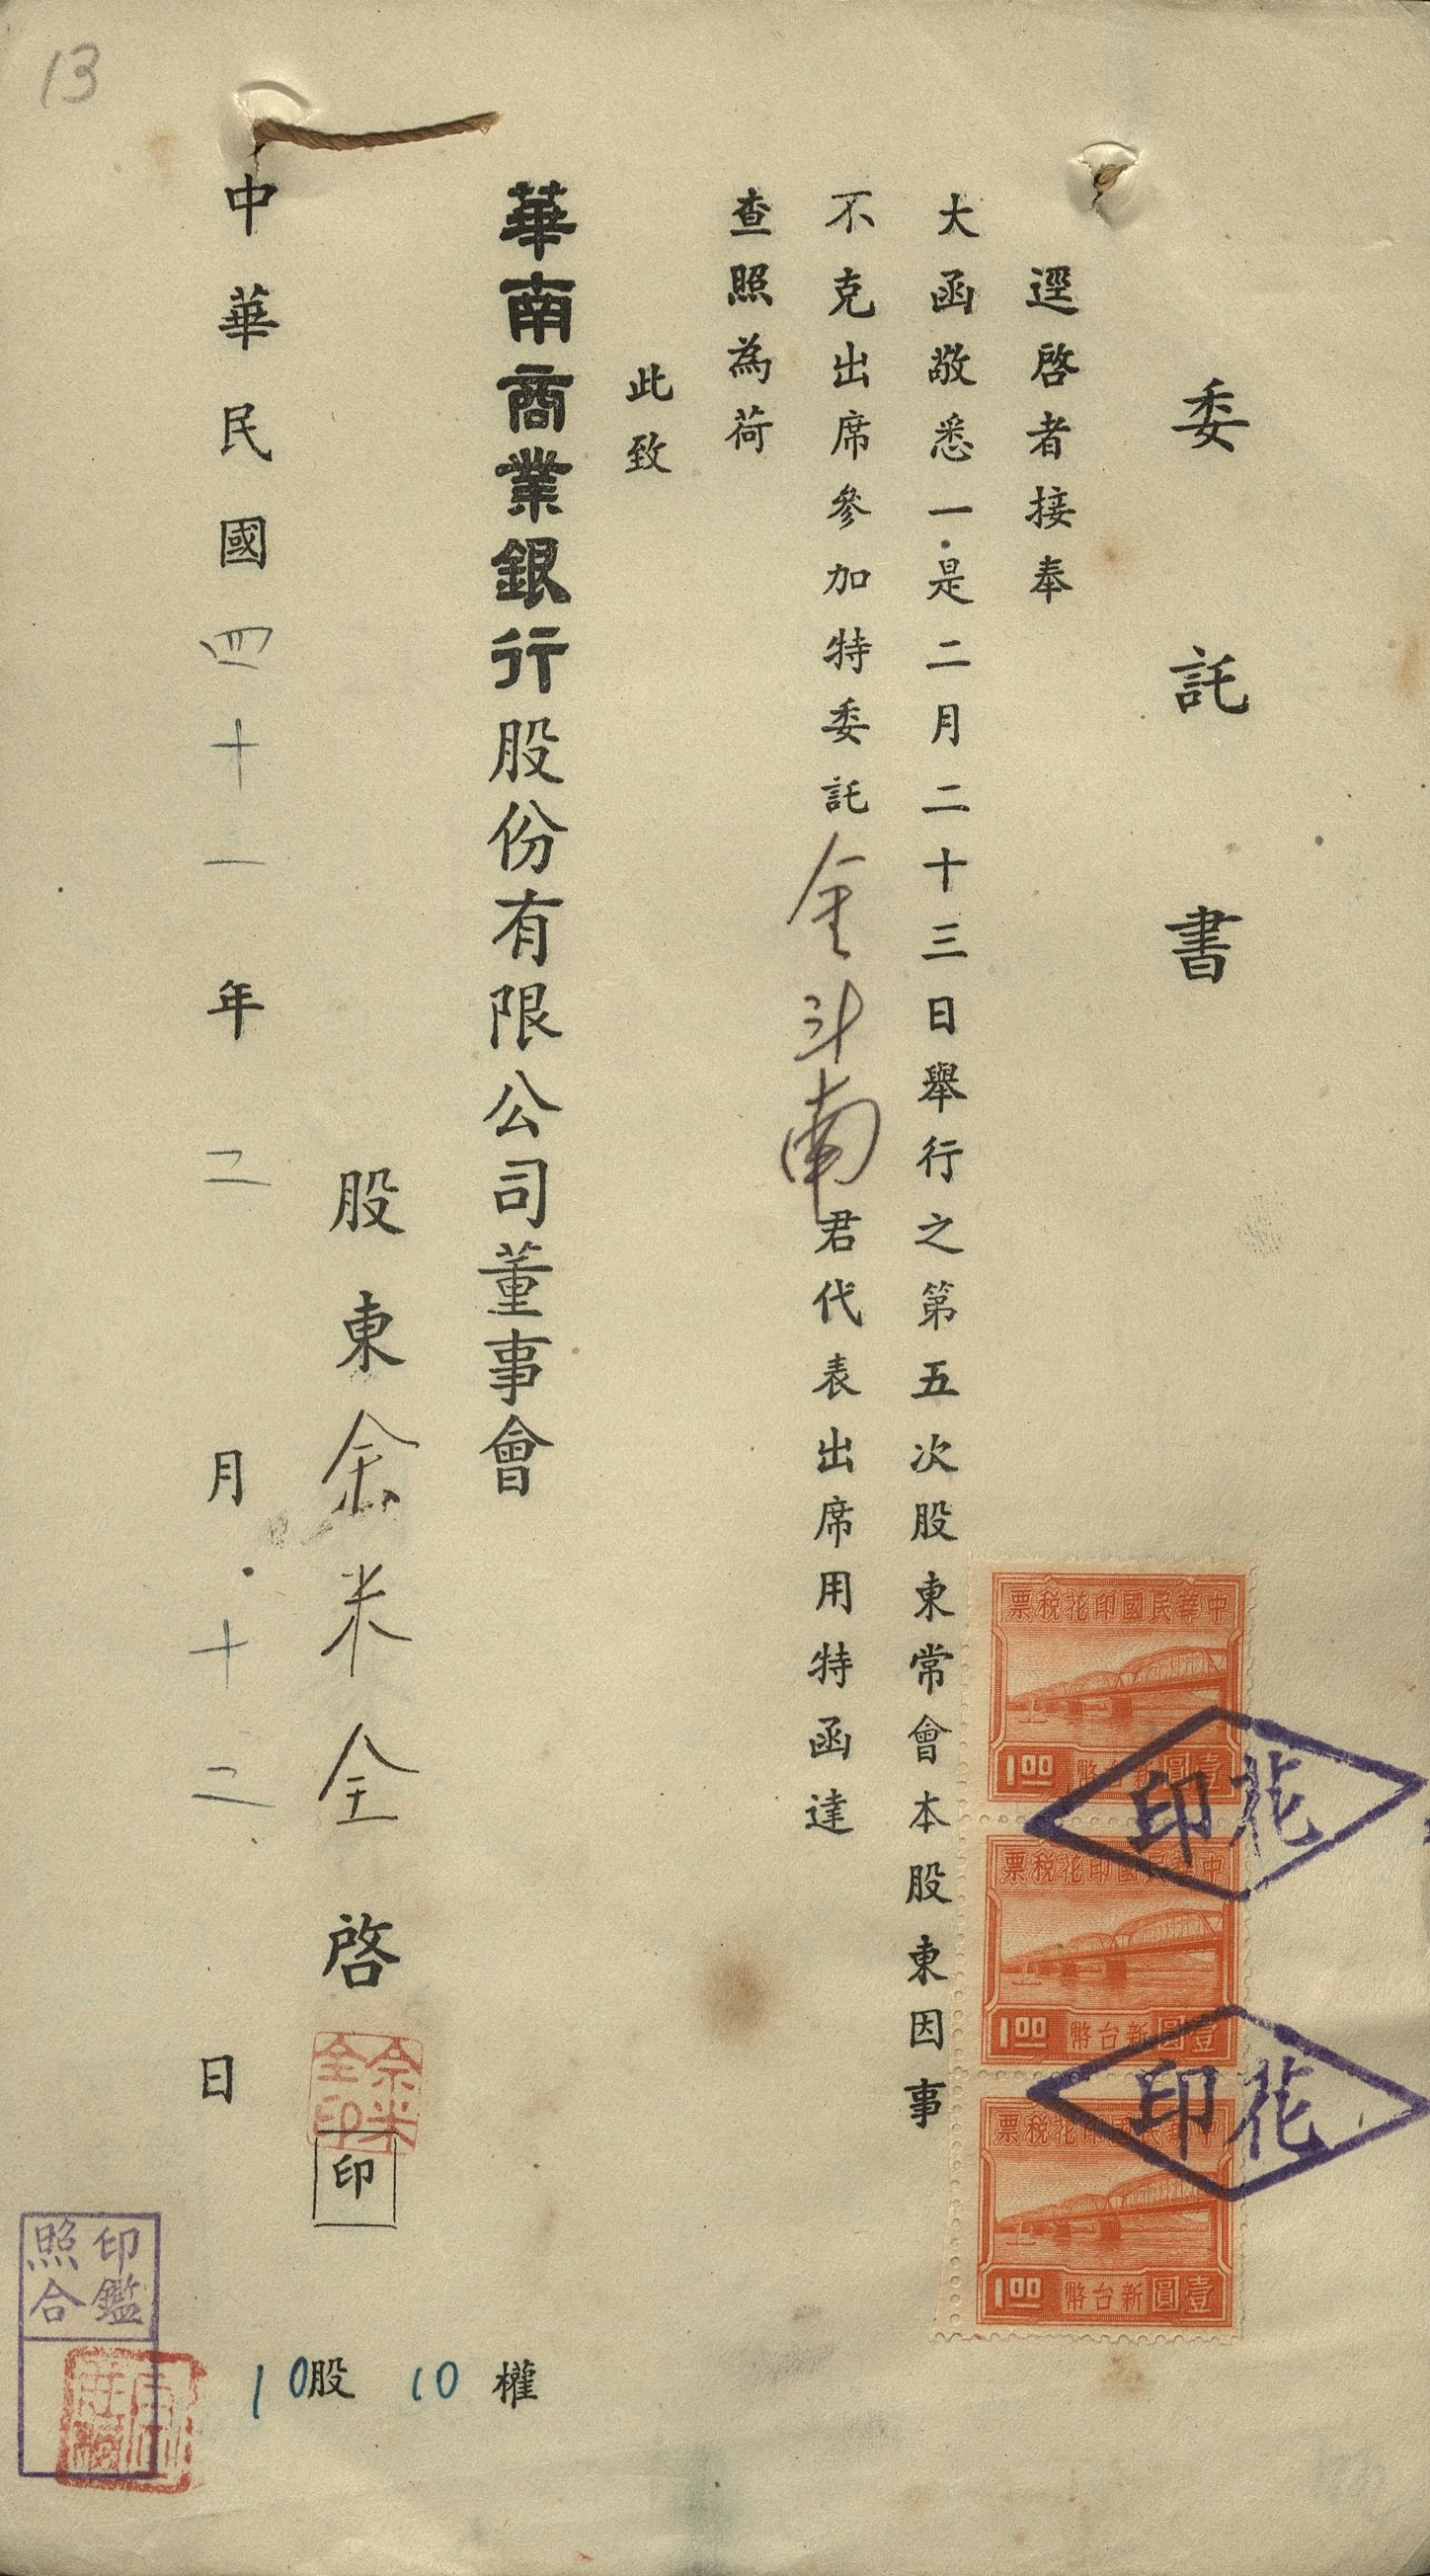 13
委託書
逕啓者接奉
大函敬悉一.是二月二十三日舉行之第五次股東常會本股東因事
不克出席參加特委託金斗南君代表出席用特函達
查照為荷
此致
華南商業銀行股份有限公司董事會
股東余米全啓
余米全印
印
中華民國四十一年二月十二日
10股 10權
印鑑照合
中華民國印花稅票
1.00 新台幣壹圓
中華民國印花稅票
1.00 新台幣壹圓
中華民國印花稅票
1.00 新台幣壹圓
花印
花印